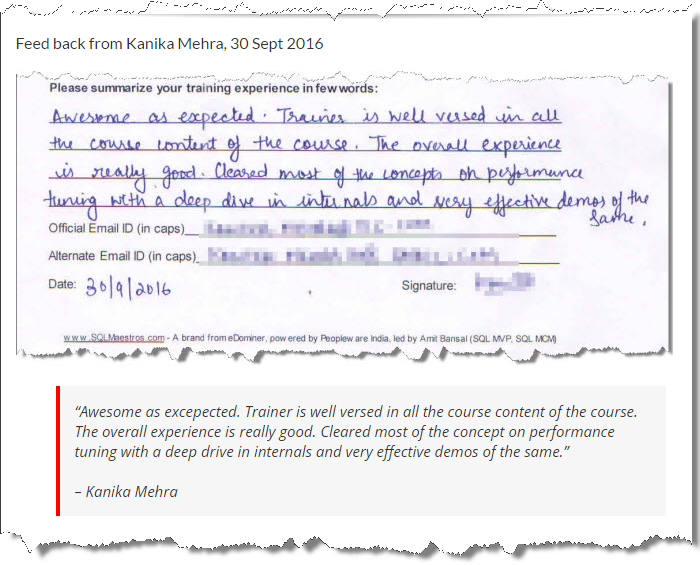 Feed back from Kanika Mehra, 30 Sept 2016
Please summarize your training experience in few words:
Awesome as expected. Trainer is well versed in all
the course content of the course. The overall experience
is really good. Cleared most of the concepts on performance
tuning with a deep dive in internals and very effective demos of the
same.
Official Email ID (in caps)
Alternate Email ID (in caps)
Date: 30/9/2016 Signature:
www.SQLMaestros.com - A brand from eDominer, powered by Peopleware India, led by Amit Bansal (SQL MVP, SQL MCM)
“Awesome as excepected. Trainer is well versed in all the course content of the course.
The overall experience is really good. Cleared most of the concept on performance
tuning with a deep drive in internals and very effective demos of the same.”
– Kanika Mehra